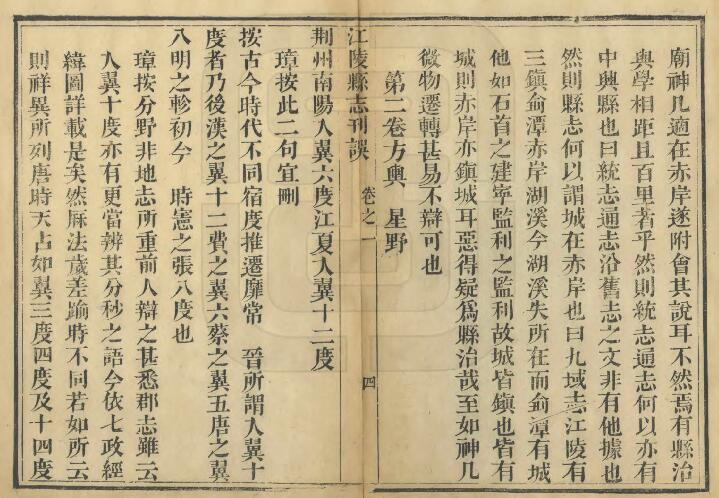 廟神几適在赤岸遂附會其說耳不然焉有縣治
與學相距且百里者乎然則統志通志何以亦有
中興縣也曰統志通志沿舊志之文非有他據也
然則縣志何以謂城在赤岸也曰九域志江陵有
三鎮俞潭赤岸湖溪今湖溪失所在而俞潭有城
他如石首之建寧監利之監利故城皆鎮也皆有
城則赤岸亦鎮城耳惡得疑爲縣治哉至如神几
微物遷轉甚易不辯可也
第二卷方輿 星野
江陵縣志刊誤 卷之一 四
荆州南陽入翼六度江夏入翼十二度
璋按此二句宜刪
按古今時代不同宿度推遷靡常 晉所謂入翼十
度者乃後漢之翼十二費之翼六蔡之翼五唐之翼
八明之軫初今 時憲之張八度也
璋按分野非地志所重前人辯之甚悉郡志雖云
入翼十度亦有更當辨其分秒之語今依七政經
緯圖詳載是矣然厤法歲差踰時不同若如所云
則祥異所列唐時天占如翼三度四度及十四度